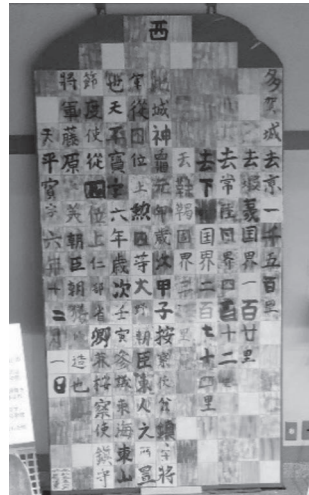 西
多賀城 去京一千五百里
去蝦夷国界一百廿里
去常陸国界四百十二里
去下野国界二百七十四里
去靺鞨国界三千里
此城神龜元年歳次甲子按察使兼鎮守將
軍從四位上勲四等大野朝臣東人之所置
也天平寶字六年歳次壬寅參議東海東山
節度使從四位上仁部省卿兼按察使鎮守
將軍藤原惠美朝臣朝獦修造也
天平寶字六年十二月一日